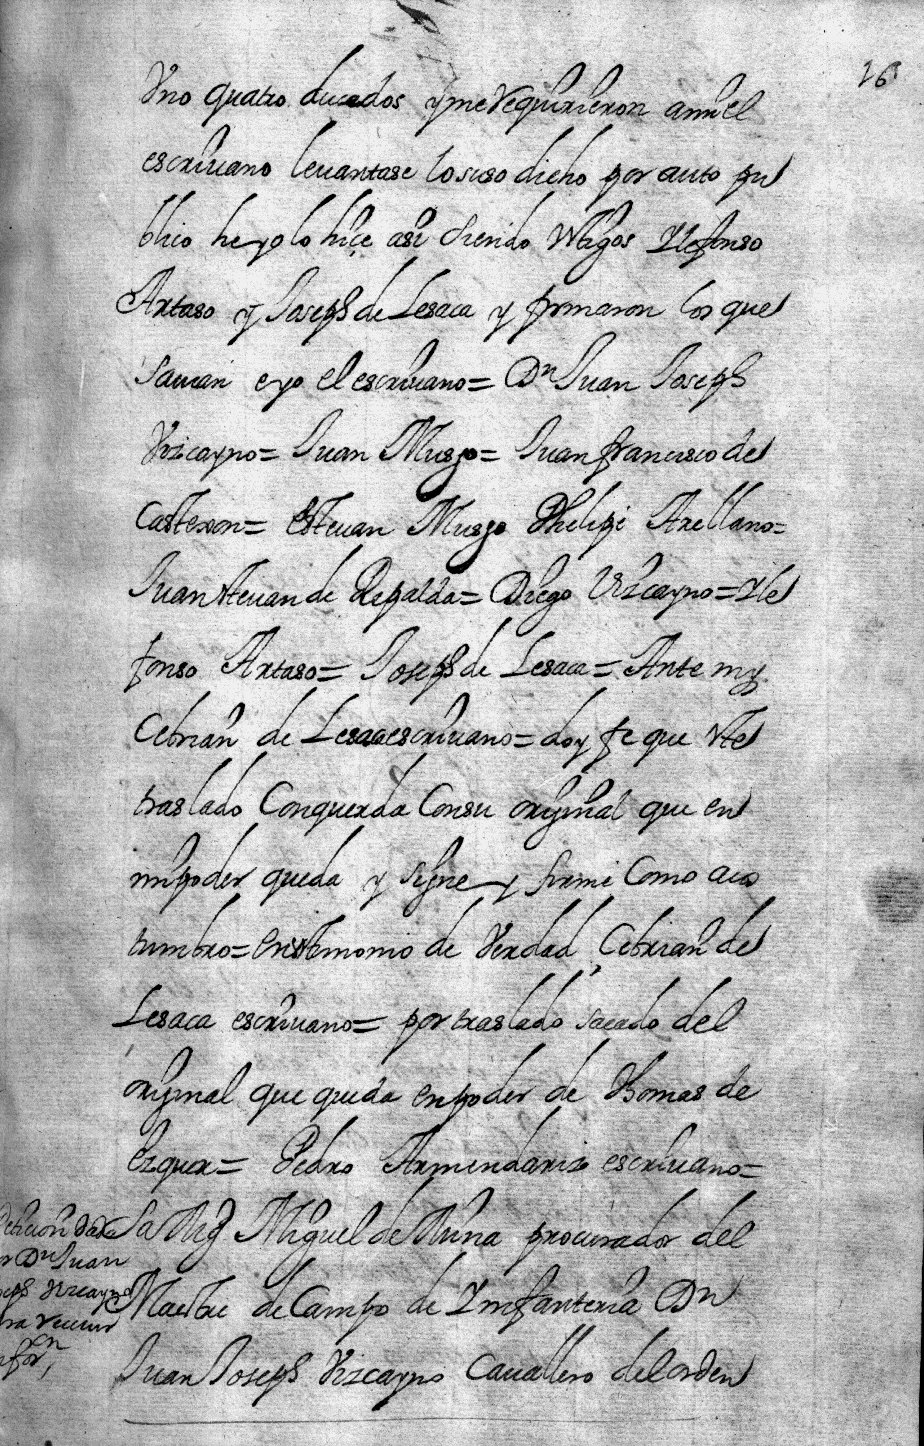 163
Vno quatro ducados y me requirieron a mi el
escriuano leuantase lo suso dicho por auto pu
blico he yo lo hiçe asi siendo testigos Ylefonso
Artaso y Joseph de Lesaca y firmaron los que
sauian e yo el escriuano = Dn Juan Joseph
Vizcayno = Juan Musgo = Juan francisco de
Castexon = Esteuan Musgo Phelipe Arellano =
Juan steuan de Repalda = Diego Vizcayno = Yle
fonso Artaso = Joseph de Lesaca = Ante my
Cebrian de Lesaca escriuano = doy fe que este
traslado Conquerda Con su original que en
mi poder queda y signe y firmi Como acos
tumbro = En testimonio de Verdad, Cebrian de
Lesaca escriuano = por traslado sacado del
original que queda en poder de Thomas de
Ezquer = Pedro Armendariz escriuano =
Peticion dada
Dn Juan
Joseph Vizcayno
para reciuir
infoon
Sa Mgd Miguel de procurador del
Maestre de Campo de Ynfanteria Dn
Juan Joseph Vizcayno Cauallero del orden